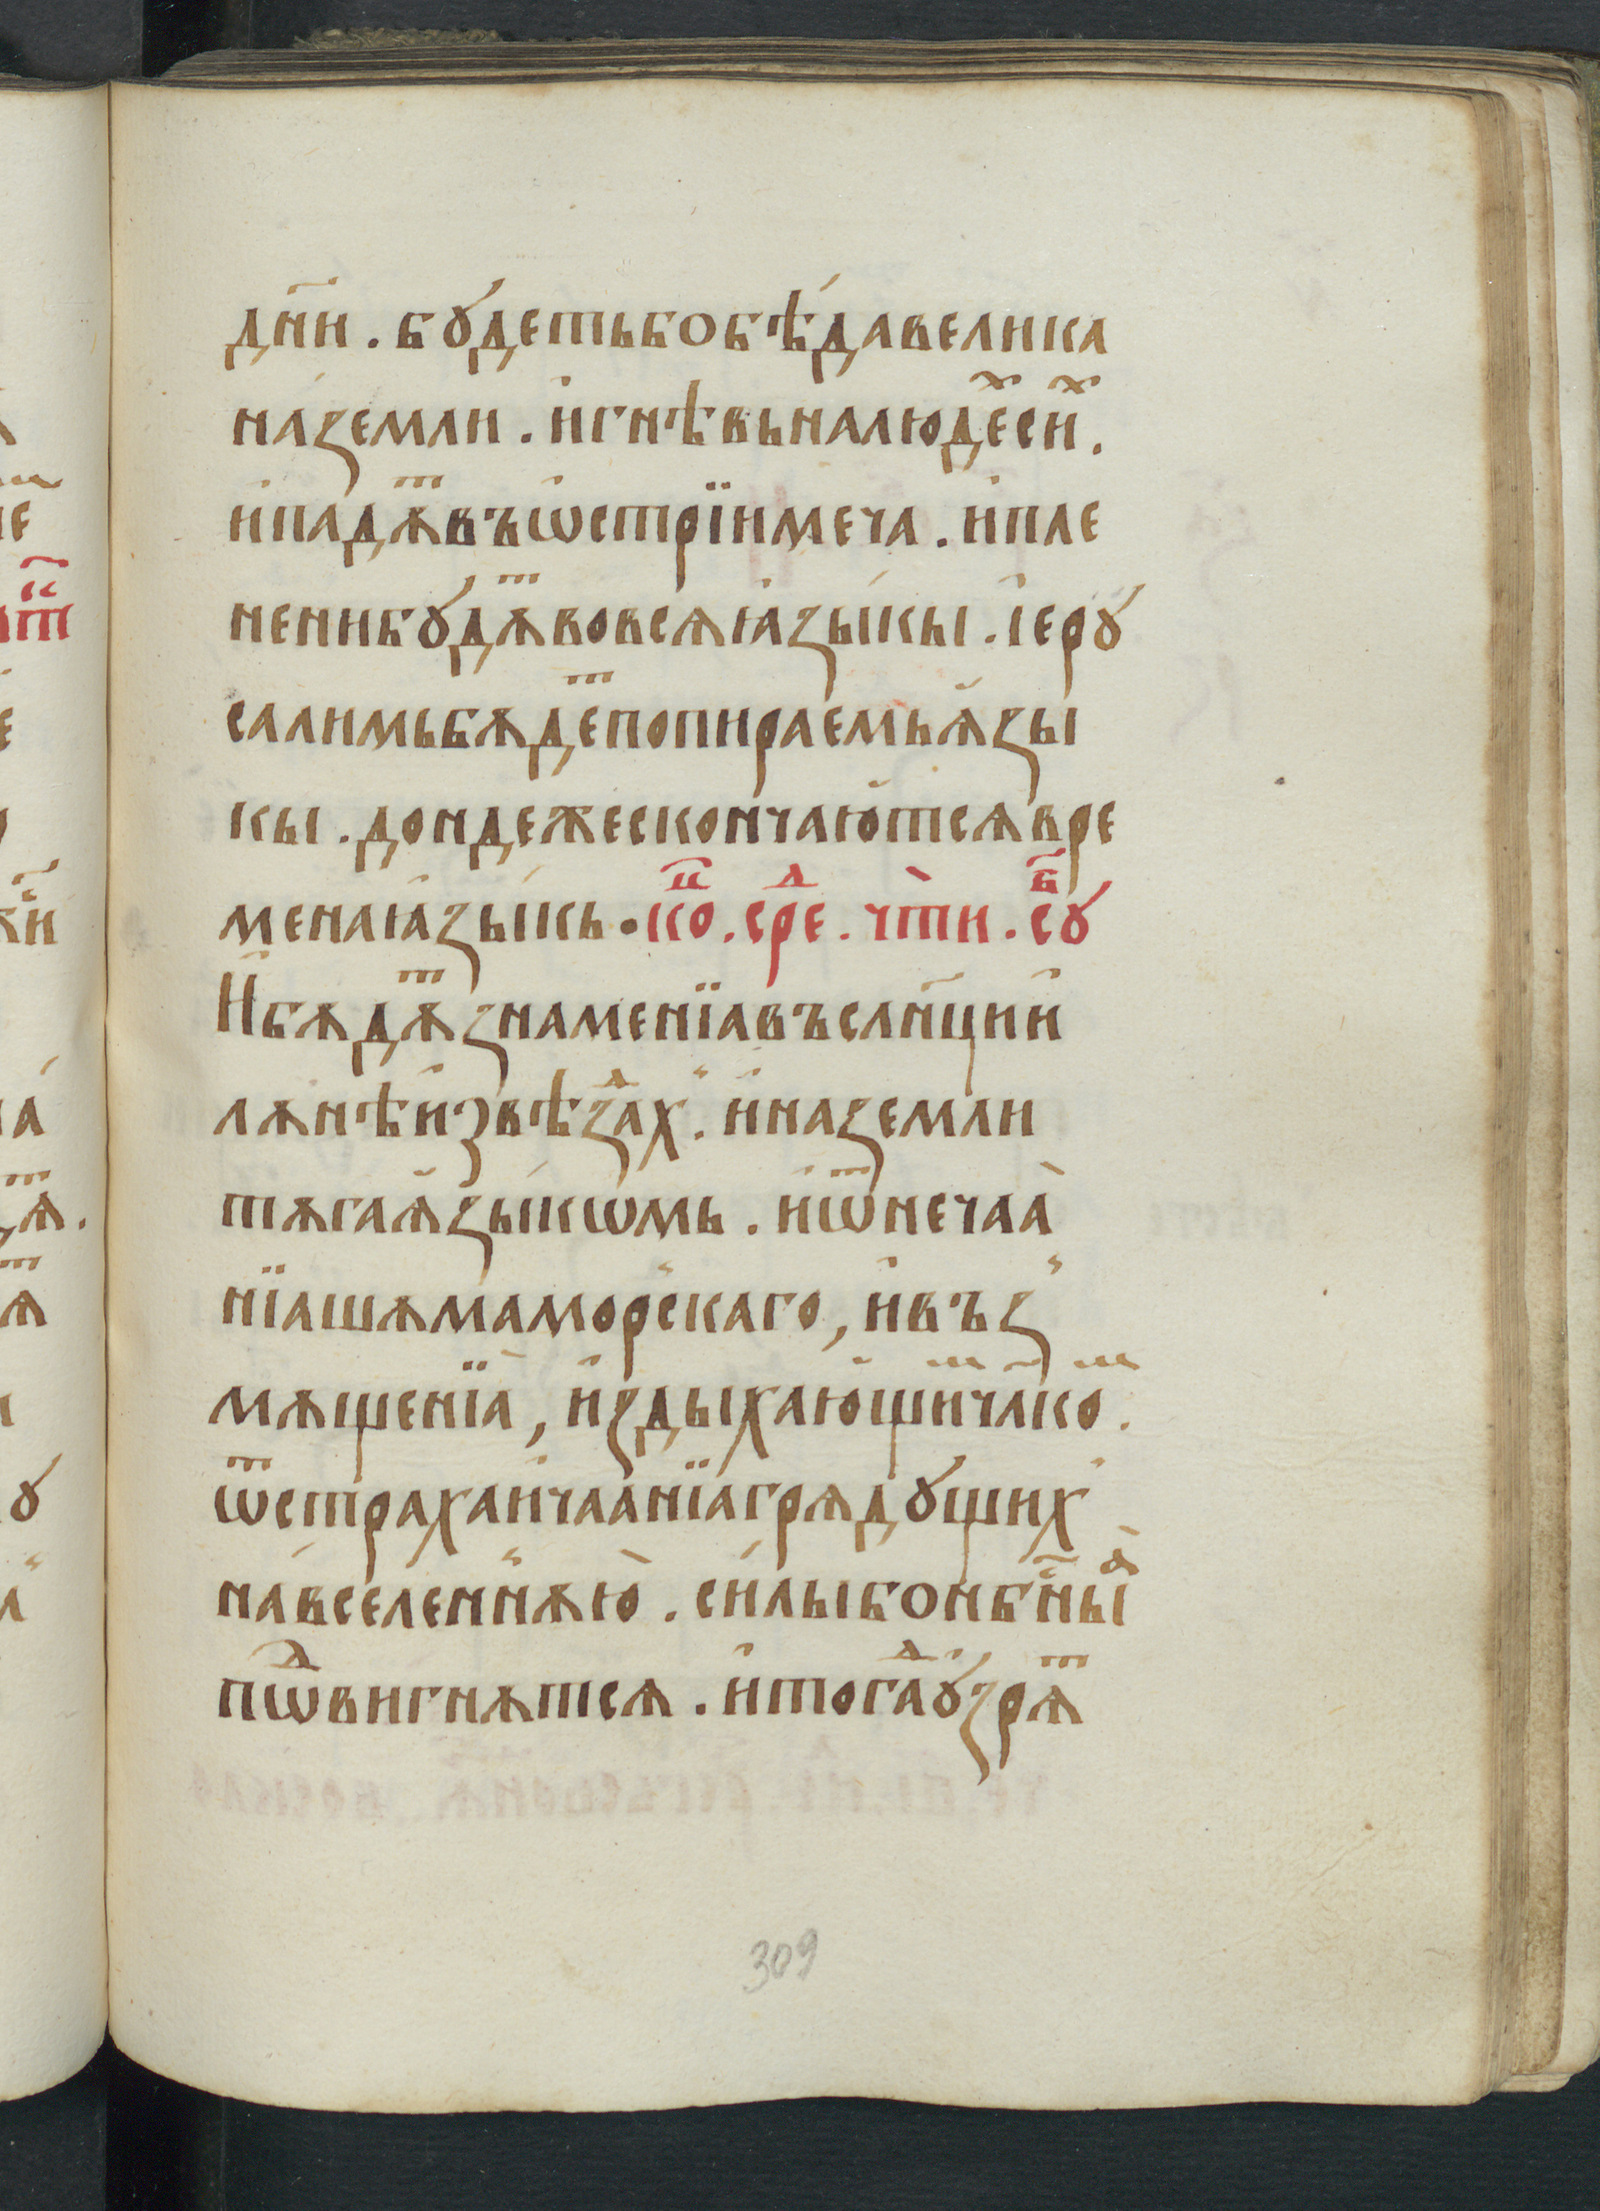 дн҃и. бꙋ́деть бо бѣ́да велика
на́ земли. и҆ гнѣвь на лю́деⷯ сиⷯ.
и҆ падѫⷮ въ ѡ҆стрїи меча. и плe
нени бꙋ́дѫⷮ во всѧ ꙗ҆зы́кы. і҆ерꙋ
салимь бѫдеⷮ попираемь ѧ҆ꙁы
кы. дондеже скончаю҆тсѧ вре
мена ꙗ҆ꙁы́кь. коⷰ҇. среⷣ. чт̀и. сꙋⷠ҇
И҆ бѫдѫⷮ ꙁнаменїа въ сл҃нци и҆
лѫнѣ и҆ звѣꙁаⷣх. и҆ на ꙁемли
тѫга ѧ҆ꙁы́кѡмь. и҆ ѿ нечаа҆
нїа шѫма морскаго, и҆ въꙁ
мѫщенїа, и҆ꙁдыхаю҆щиⷨ чл҃коⷨ.
ѿ страха и҆ чаа҆нїа грѧдꙋ́щих
на́ вселеннѫю̀. си́лы бо нбⷭ҇ныѫ
пѡⷣвигнѫтсѧ. и҆ тогаⷣ ꙋ́ꙁрѧⷮ
309